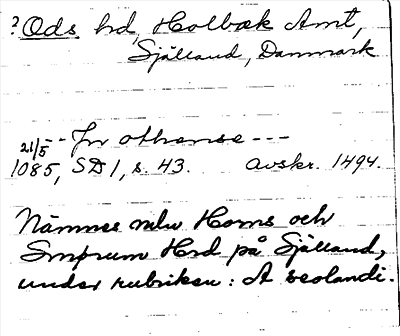 ? Ods hd, Holbæk Amt,
Själland, Danmark
21/5 -- In othense ---
1085, SD 1, s. 43. avskr. 1494.
Nämnes mlu Horns och
Smørum Hrd på Själland,
under rubriken: A seolandi.